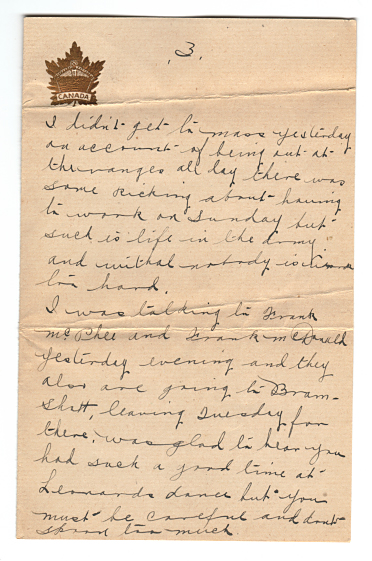 3.
CANADA
I didn't get to mass yesterday
on account of being out at
the ranges all day there was
some kicking about having
to work on Sunday but
such is life in the army
and withal nobody is
too hard.
I was talking to Frank
McPhee and Frank McDonald
yesterday evening and they
also are going to Bram-
shott, leaving Tuesday for
there, was glad to hear you
had such a good time at
Leonards dance but you
must be careful and dont
spend too much